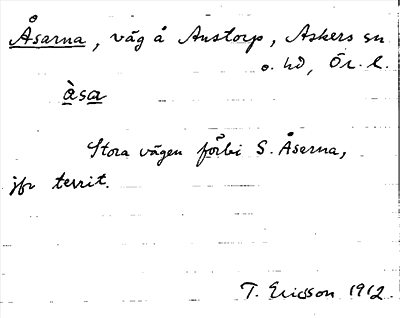 Åsarna, väg å Anstorp, Askers sn
o. hd, Ör. l.
àsa
Stora vägen förbi S. Åsarna,
jfr territ.
T. Ericsson 1912